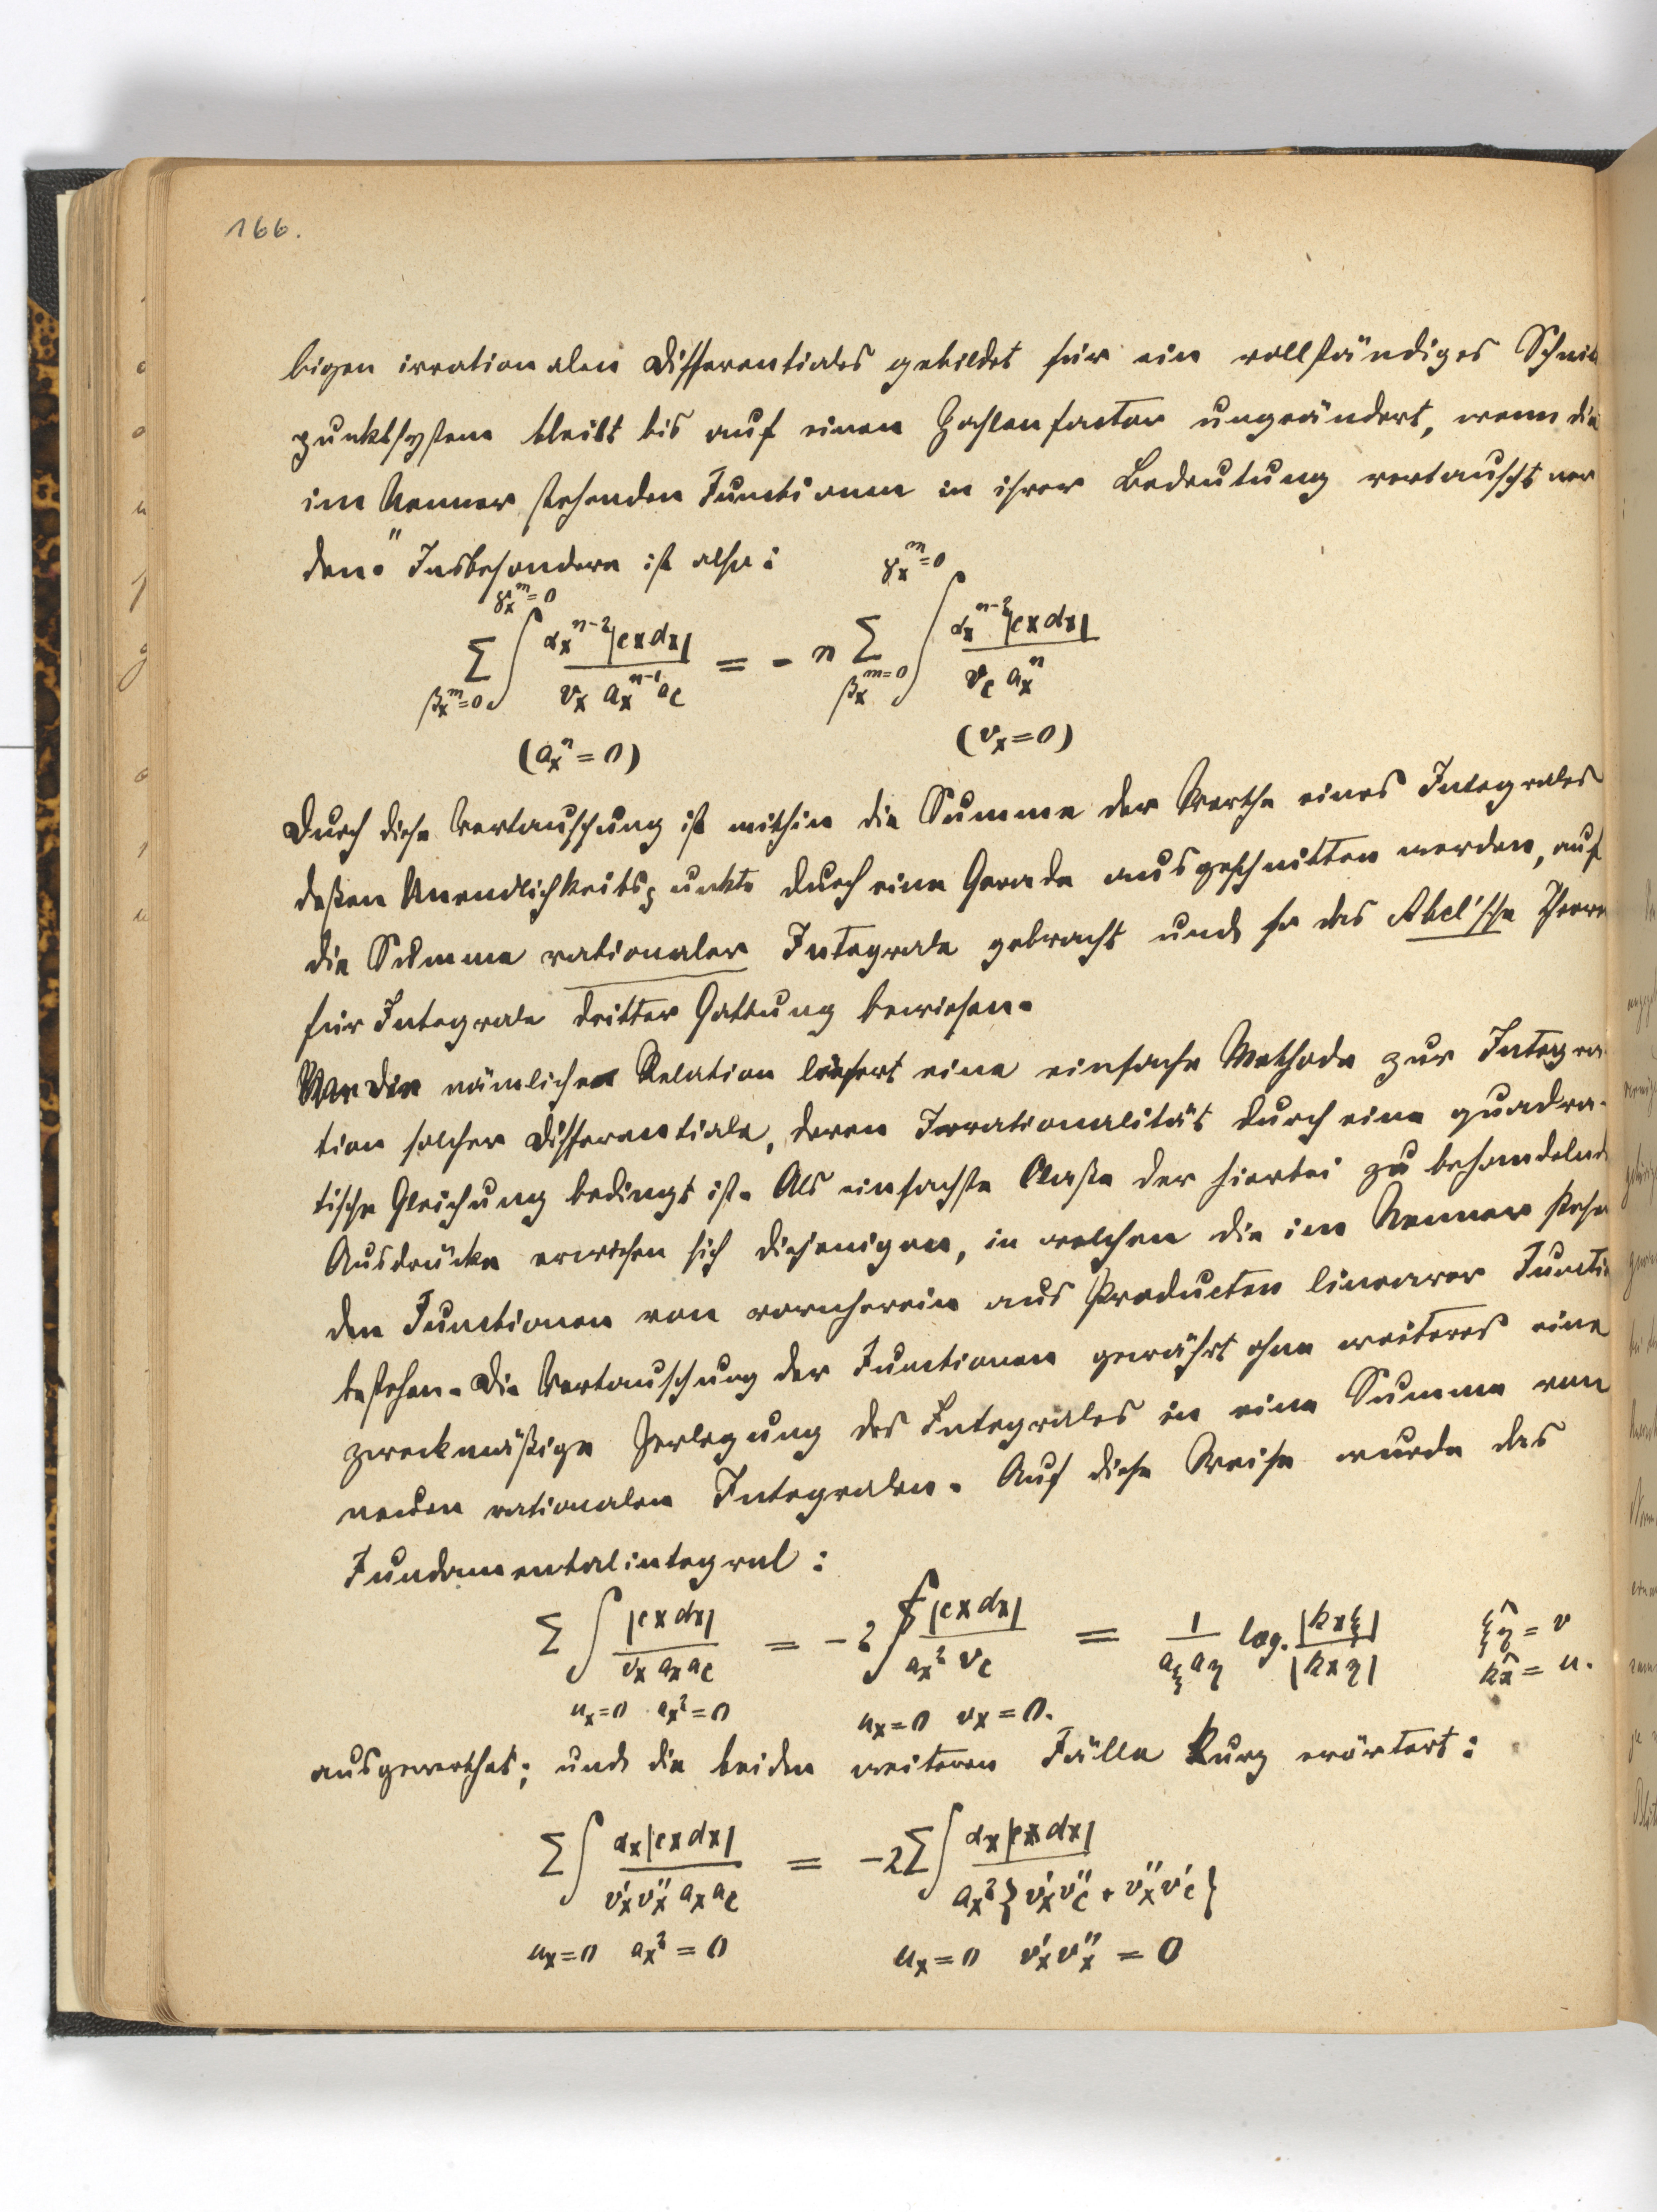 166.
bigen irrationalen Differentiales gebildet für ein vollständiges Schnit
punktsystem bleibt bis auf einen Zahlenfactor ungeändert, wenn die
im Nenner stehenden Functionen in ihrer Bedeutung vertauscht wer
den." Insbesondere ist also:
γₓᵐ=0 γₓᵐ=0
Σ ∫ αₓⁿ⁻²|cxdx| / vₓ aₓⁿ⁻¹ a_c = - n Σ ∫ αₓⁿ⁻²|cxdx| / v_c aₓⁿ
βₓᵐ=0 βₓᵐ=0
(aₓⁿ = 0) (vₓ=0)
Durch diese Vertauschung ist mithin die Summe der Werthe eines Integrales
deßen Unendlichkeitspunkte durch eine Gerade ausgeschnitten werden, auf
die Summe rationaler Integrale gebracht und so das Abel'sche Theore
für Integrale dritter Gattung bewiesen.
Die nämliche Relation liefert eine einfache Methode zur Integra-
tion solcher Differentiale, deren Irrationalität durch eine quadra-
tische Gleichung bedingt ist. Als einfachste Classe der hierbei zu behandelnde
Ausdrücke erwiesen sich diejenigen, in welchen die im Nenner stehe
den Functionen von vornherein aus Producten linearer Functio
bestehen. Die Vertauschung der Functionen gewährt ohne weiteres eine
zweckmäßige Zerlegung des Integrales in eine Summe von
neuen rationalen Integralen. Auf diese Weise wurde das
Fundamentalintegral:
Σ ∫ |cxdx| / vₓ aₓ a_c = -2 ∫ |cxdx| / aₓ² v_c = 1 / a_ξ a_η log. |kxξ| / |kxη| ξ͡η = v
k͡x = u.
uₓ=0 aₓ²=0 uₓ=0 vₓ=0.
ausgewerthet; und die beiden weiteren Fälle kurz erörtert:
Σ ∫ αₓ|cxdx| / v'ₓv''ₓ aₓ a_c = -2 Σ ∫ αₓ|cxdx| / aₓ²{v'ₓv''_c + v''ₓv'_c}
uₓ=0 aₓ² = 0 uₓ=0 v'ₓv''ₓ = 0